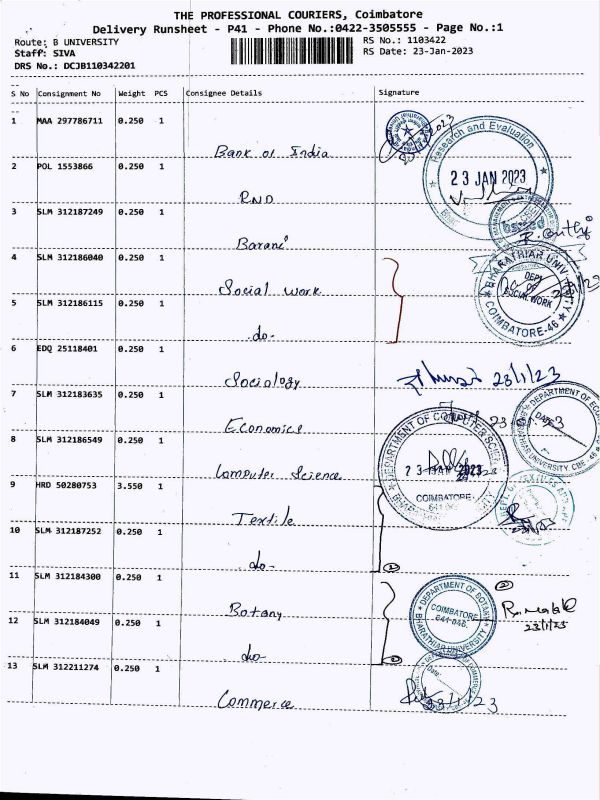 THE PROFESSIONAL COURIERS, Coimbatore
Delivery Runsheet - P41 - Phone No.:0422-3505555 - Page No.:1
Route: B UNIVERSITY RS No.: 1103422
Staff: SIVA RS Date: 23-Jan-2023
DRS No.: DCJB110342201
S No Consignment No Weight PCS Consignee Details Signature
1 MAA 297786711 0.250 1
Bank of India
2 POL 1553866 0.250 1
RND
3 SLM 312187249 0.250 1
Barani
4 SLM 312186040 0.250 1
Social work
5 SLM 312186115 0.250 1
do-
6 EDQ 25118401 0.250 1
Sociology
7 SLM 312183635 0.250 1
Economics
8 SLM 312186549 0.250 1
Computer Science
9 HRD 50280753 3.550 1
Textile
10 SLM 312187252 0.250 1
do-
11 SLM 312184300 0.250 1
Botany
12 SLM 312184049 0.250 1
do-
13 SLM 312211274 0.250 1
Commerce
Research and Evaluation
23 JAN 2023
BHARATHIAR UNIVERSITY
DEPT OF SOCIAL WORK
COIMBATORE-46
23/1/23
DEPARTMENT OF ECO
DATE
BHARATHIAR UNIVERSITY, CBE - 46
DEPARTMENT OF COMPUTER SCIENCE
23 JAN 2023
COIMBATORE
2
DEPARTMENT OF BOTANY
COIMBATORE
641 046.
BHARATHIAR UNIVERSITY
2
23/1/23
2
23/1/23